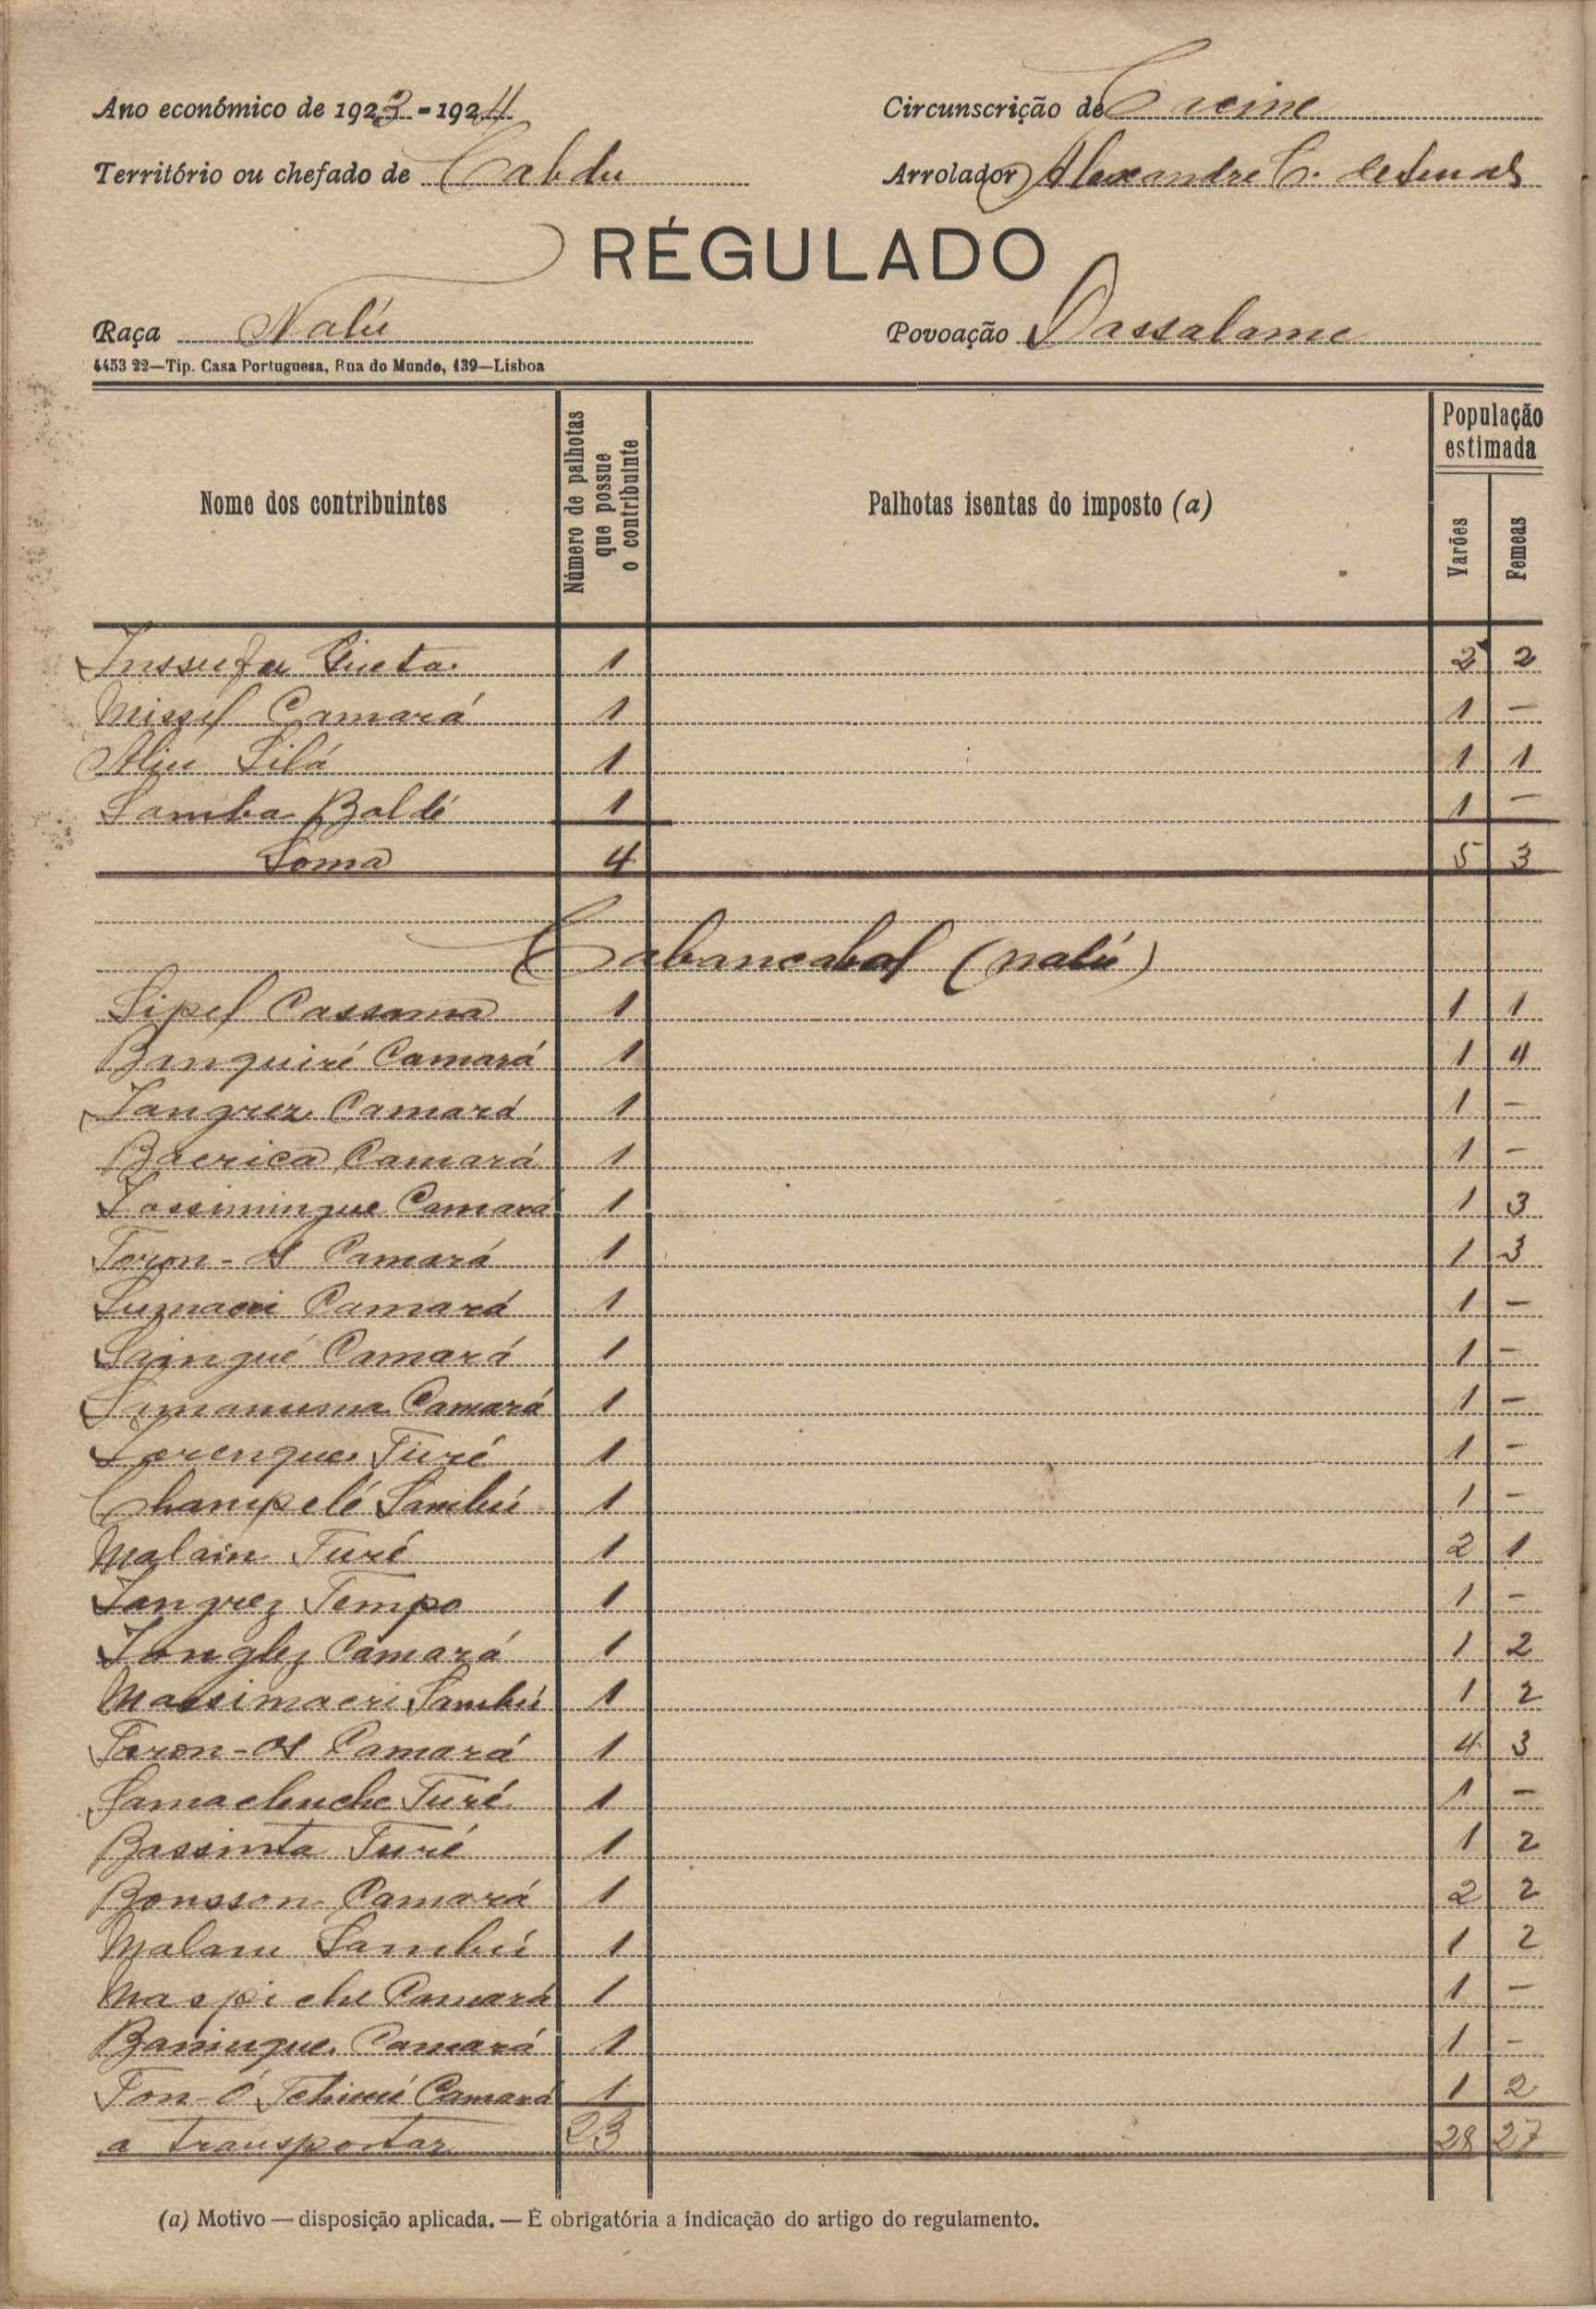 Ano económico de 1923-1924 Circunscrição de Cacine
Território ou chefado de Cabdu Arrolador Alexandre C.
RÉGULADO
Raça Nalú Povoação Dassalame
4453 22—Tip. Casa Portuguesa, Rua do Mundo, 139—Lisboa
Nome dos contribuintes Número de palhotas que possue o contribuinte Palhotas isentas do imposto (a) População estimada Varões Femeas
Inssufu 1 2 2
Missef Camará 1 1 -
Aliu Silá 1 1 1
Samba Baldé 1 1 -
Soma 4 5 3
Cabancabal (nalú)
Sipef Cassama 1 1 1
Banquiré Camará 1 1 4
Tangrez Camará 1 1 -
Baerica Camará 1 1 -
Tassimingue Camará 1 1 3
Toron- Camará 1 1 3
Sumacri Camará 1 1 -
Saingué Camará 1 1 -
Camará 1 1 -
Turé 1 1 -
Champelé Sambú 1 1 -
Malain Turé 1 2 1
Tangrez Tempo 1 1 -
Tanglez Camará 1 1 2
Massimacri Sambú 1 1 2
Toron- Camará 1 4 3
Samachuche Turé 1 1 -
Bassinta Turé 1 1 2
Bonsson Camará 1 2 2
Malam Sambú 1 1 2
Maspiche Camará 1 1 -
Baningue Camará 1 1 -
Ton-Ó Camará 1 1 2
a transportar 23 28 27
(a) Motivo — disposição aplicada. — É obrigatória a indicação do artigo do regulamento.